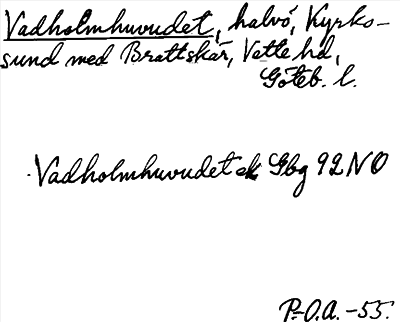 Vadholmhuvudet, halvö, Kyrko-
sund med Brattskär, Vette hd,
Göteb. l.
Vadholmhuvudet ek Gbg 92 NO
P-O.A. -55.